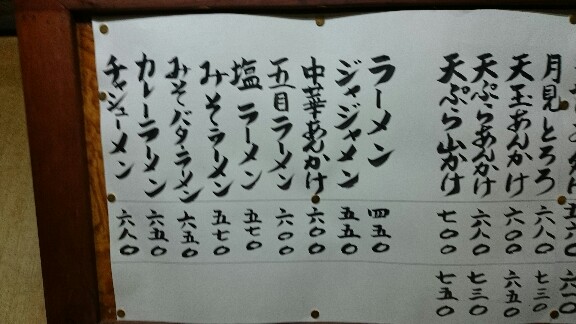 月見とろろ 六八〇 七三〇
天玉あんかけ 六〇〇 六五〇
天ぷらあんかけ 六八〇 七三〇
天ぷら山かけ 七〇〇 七五〇
ラーメン 四五〇
ジャジャメン 五五〇
中華あんかけ 六〇〇
五目ラーメン 六〇〇
塩ラーメン 五七〇
みそラーメン 五七〇
みそバタラーメン 六五〇
カレーラーメン 六五〇
チャシューメン 六八〇